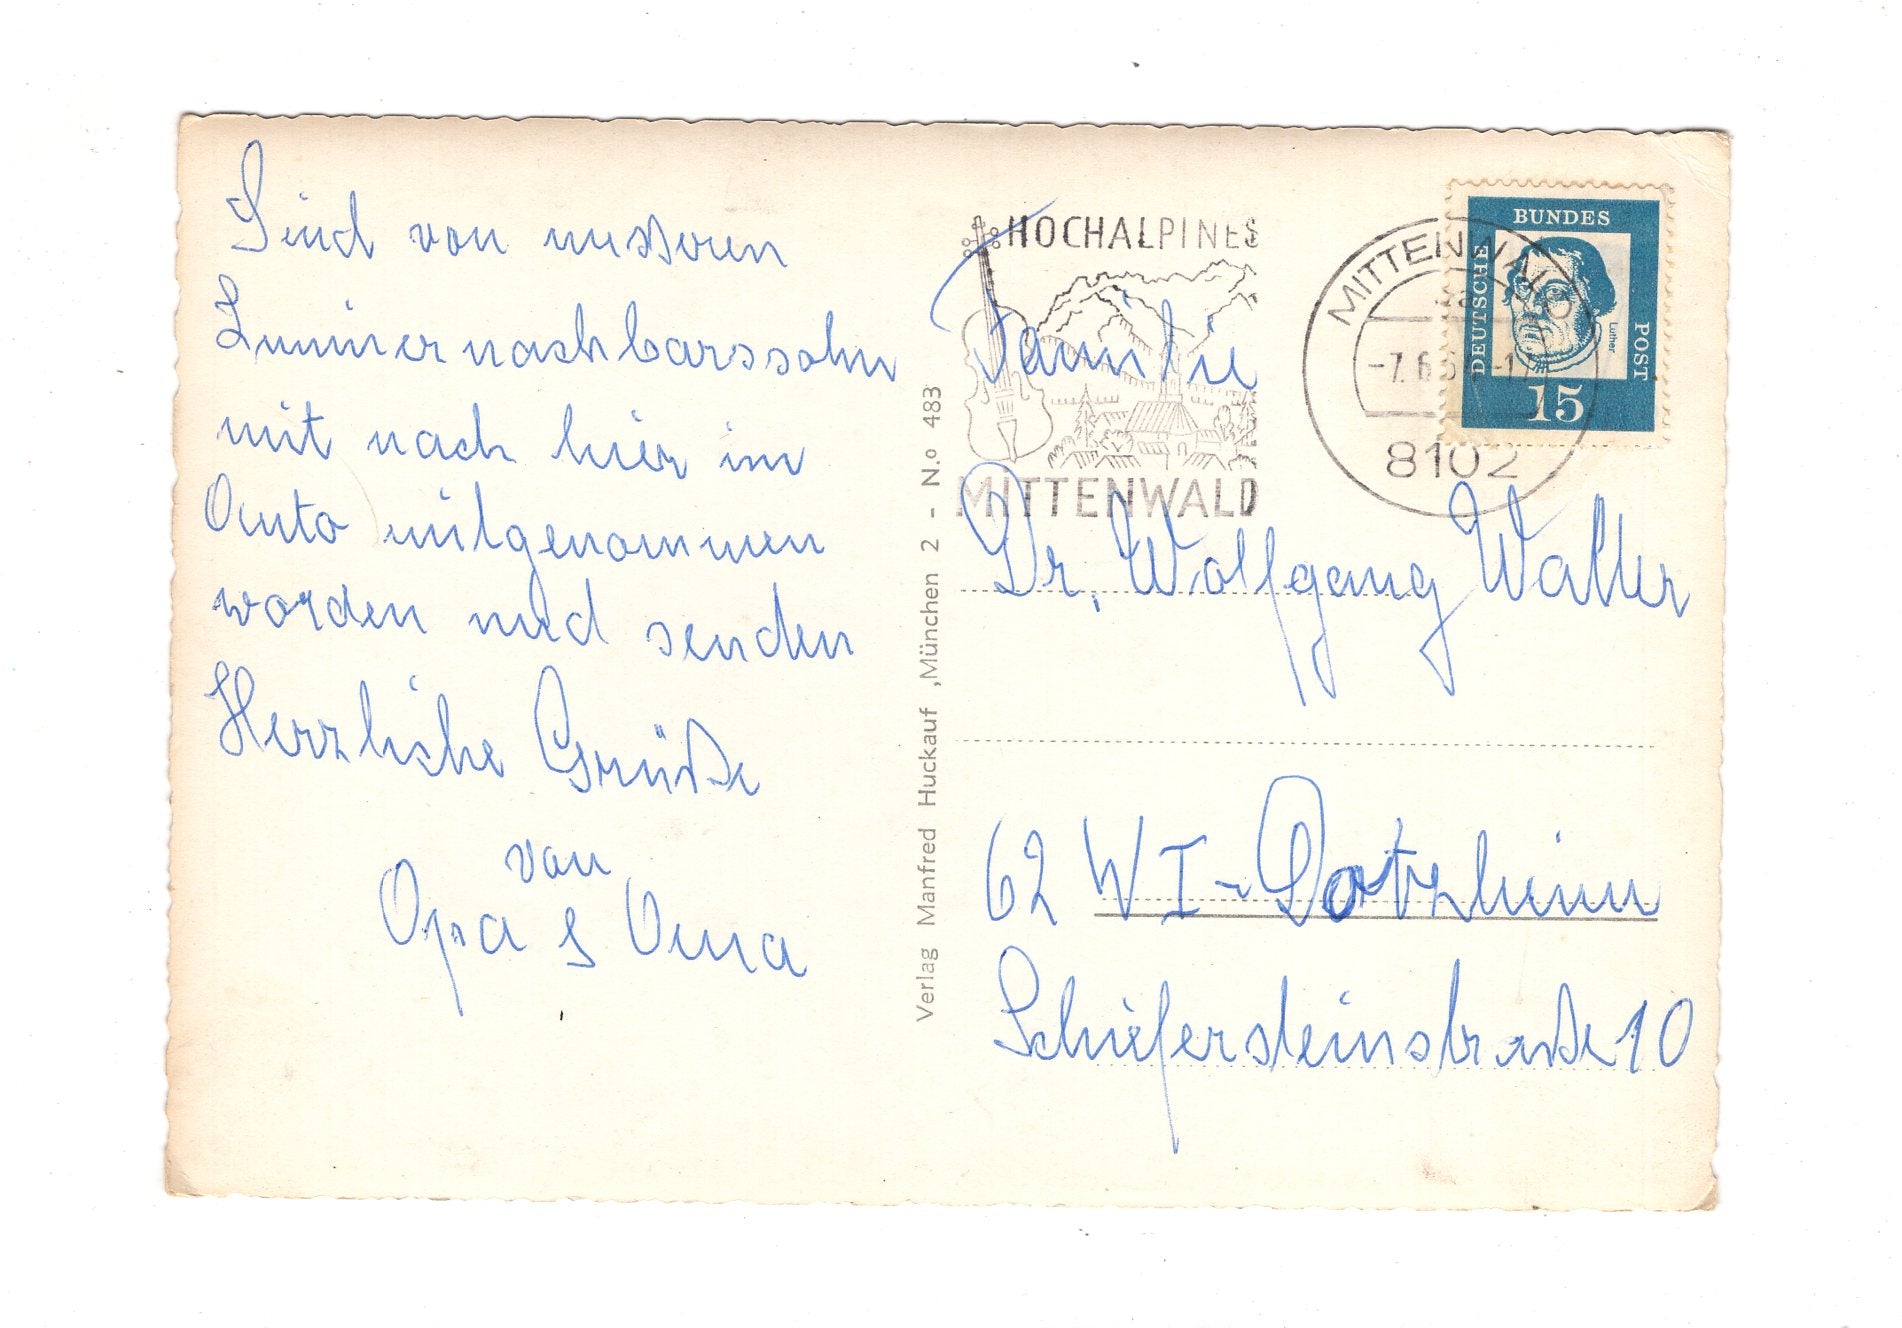 Sind von unseren
Zimmernachbarssohn
mit nach hier im
Auto mitgenommen
worden und senden
Herzliche Grüße
von
Opa & Oma
Verlag Manfred Huckauf, München 2 - N.o 483
HOCHALPINES
MITTENWALD
MITTENWALD
-7.6.6
8102
DEUTSCHE
BUNDES
POST
Luther
15
Familie
Dr. Wolfgang Walter
62 WI-Dotzheim
Schiefersteinstraße 10